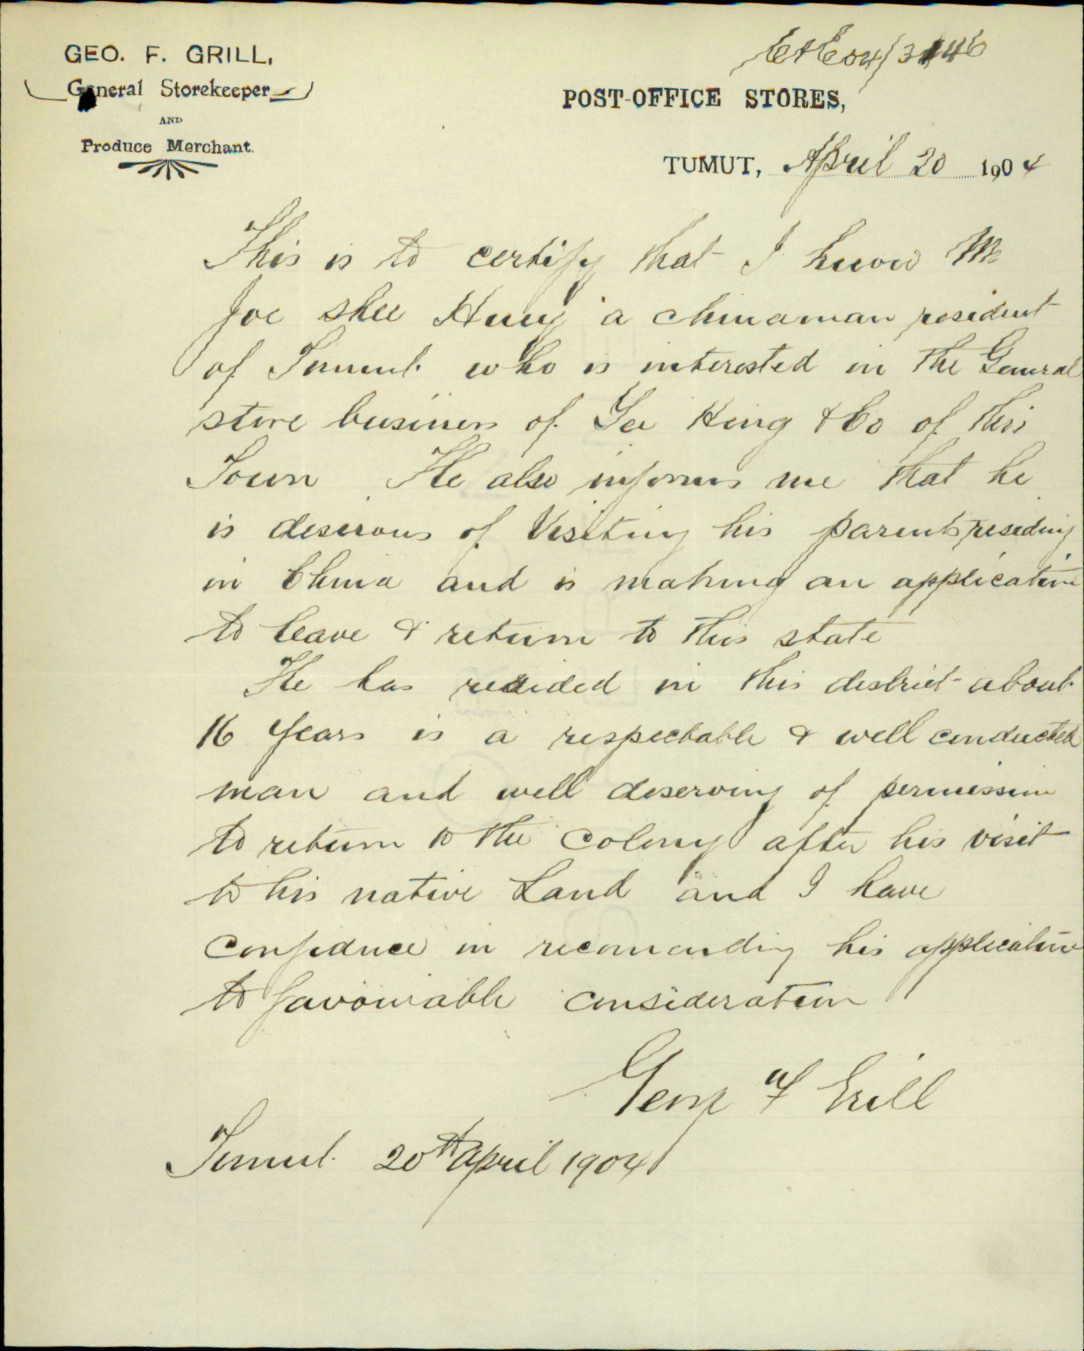 GEO. F. GRILL,
General Storekeeper
AND
Produce Merchant.
C & E 04/3146
POST-OFFICE STORES,
TUMUT, April 20 1904
This is to certify that I know Mr
Joe Shee Huey a chinaman resident
of Tumut. who is interested in the General
store business of Gee Hing & Co of this
Town. He also informs me that he
is desirous of Visiting his parents residing
in China and is making an application
to leave & return to this state
He has resided in this district about
16 years is a respectable & well conducted
man and well deserving of permission
to return to the Colony after his visit
to his native Land and I have
Confidence in recomending his application
to favourable consideration
George F Grill
Tumut. 20th April 1904